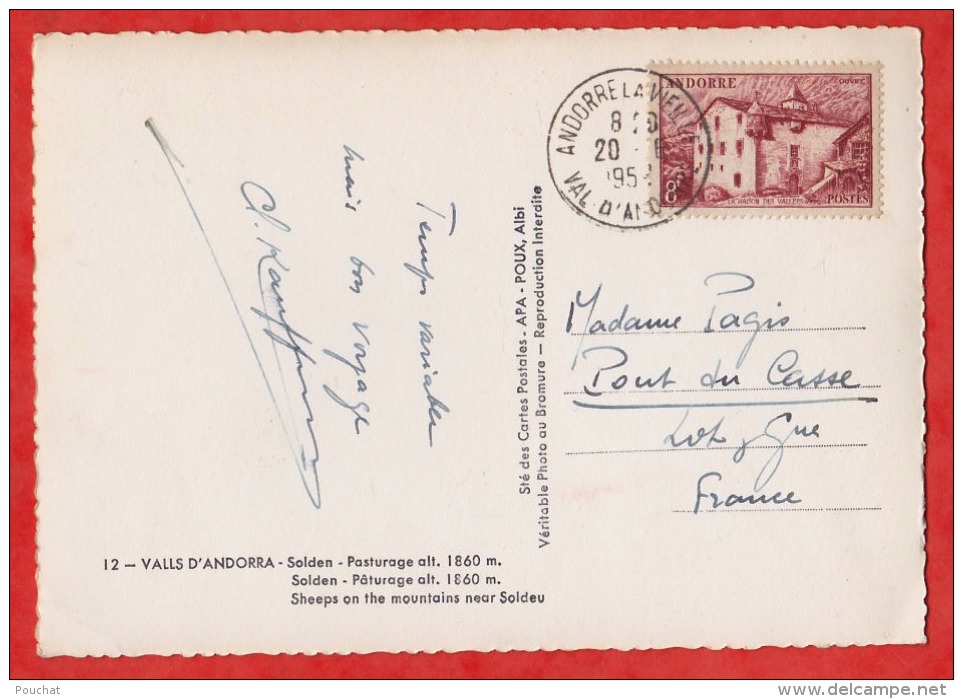 ANDORRE LA VIEILLE
20
VAL D'AND
ANDORRE
8F
LA MAISON DES VALLEES
POSTES
Temps variable
mais bon voyage
Sté des Cartes Postales - APA - POUX, Albi
Véritable Photo au Bromure — Reproduction Interdite
Madame Pagis
Pont du Casse
Lot y Gne
France
12 — VALLS D'ANDORRA - Solden - Pasturage alt. 1860 m.
Solden - Pâturage alt. 1860 m.
Sheeps on the mountains near Soldeu
Pouchat
delcampe.net